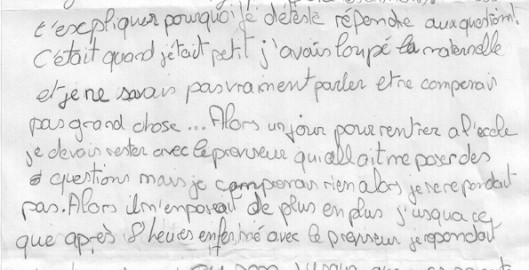 t'escpliquer pourquoi je déteste répondre aux questions!
C'était quand j'était petit j'avais loupé la maternelle
et je ne savais pas vraiment parler et ne comperais
pas grand chose... Alors un jour pour rentrer a l'ecole
je devais rester avec le proviseur qui allait me poser des
questions mais je comperais rien alors je ne repondait
pas. Alors il m'en posait de plus en plus j'usqua ce
que après 8 heures enfermé avec le proviseur je repondait